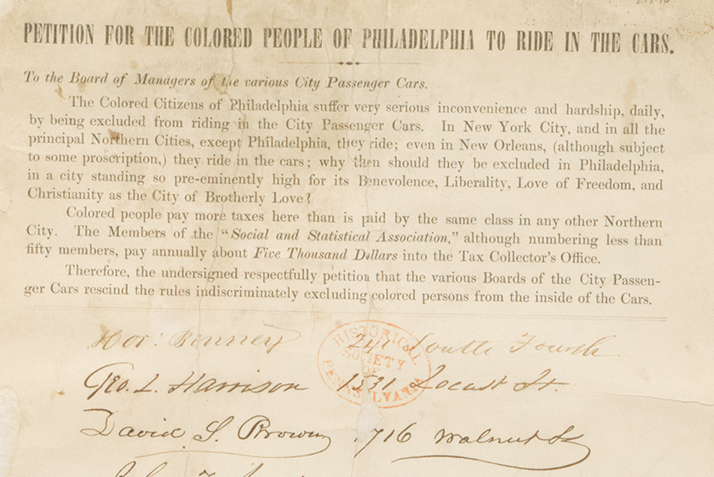 PETITION FOR THE COLORED PEOPLE OF PHILADELPHIA TO RIDE IN THE CARS.
To the Board of Managers of the various City Passenger Cars.
The Colored Citizens of Philadelphia suffer very serious inconvenience and hardship, daily,
by being excluded from riding in the City Passenger Cars. In New York City, and in all the
principal Northern Cities, except Philadelphia, they ride; even in New Orleans, (although subject
to some proscription,) they ride in the cars; why then should they be excluded in Philadelphia,
in a city standing so pre-eminently high for its Benevolence, Liberality, Love of Freedom, and
Christianity as the City of Brotherly Love?
Colored people pay more taxes here than is paid by the same class in any other Northern
City. The Members of the "Social and Statistical Association," although numbering less than
fifty members, pay annually about Five Thousand Dollars into the Tax Collector's Office.
Therefore, the undersigned respectfully petition that the various Boards of the City Passen-
ger Cars rescind the rules indiscriminately excluding colored persons from the inside of the Cars.
Hor: Binney 241 South Fourth
HISTORICAL SOCIETY OF PENNSYLVANIA
Geo. L. Harrison 1531 Locust St.
David S. Brown 716 Walnut St